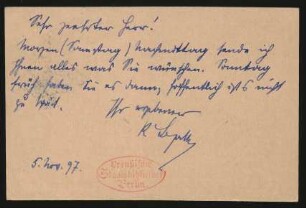 Sehr geehrter Herr!
Morgen (Samstag) Nachmittag sende ich
Ihnen alles was Sie wünschen. Sonntag
früh haben Sie es dann, hoffentlich ist's nicht
zu spät.
Ihr ergebener
R.
5. Nov. 97.
Preußische
Staatsbibliothek
Berlin